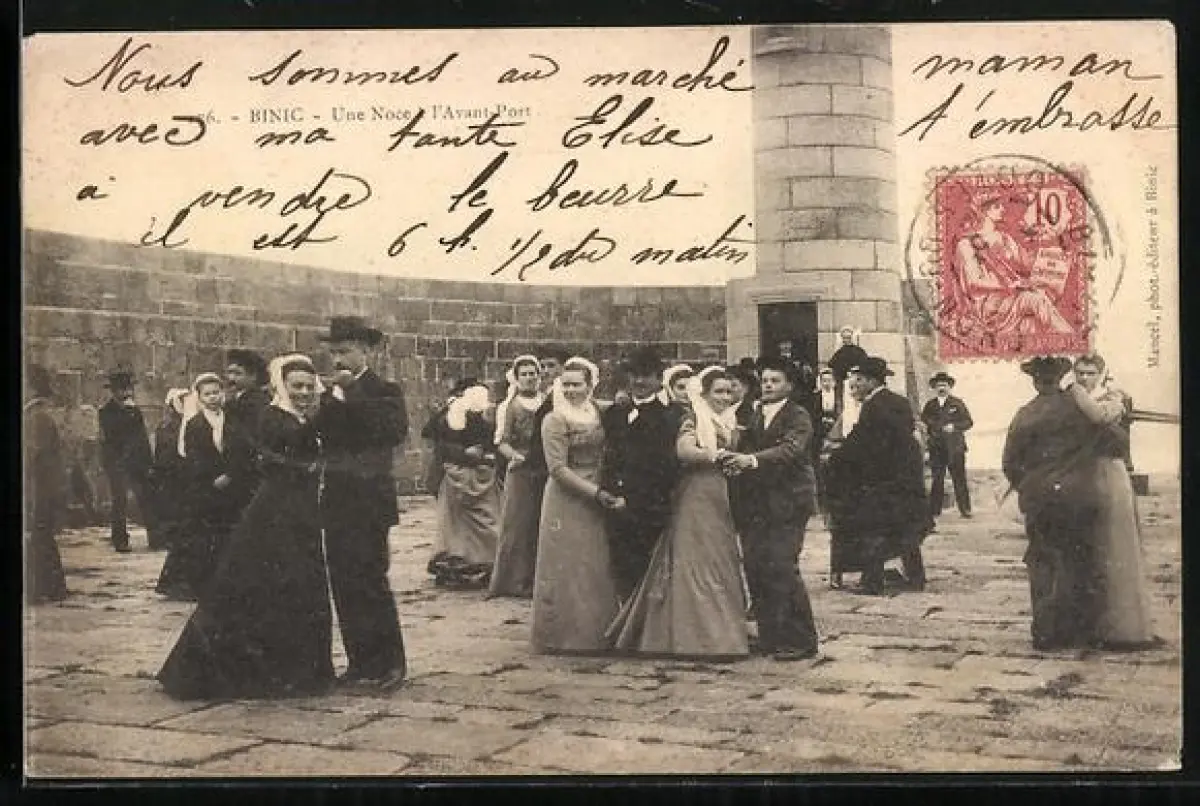 Nous sommes au marché
56. - BINIC - Une Noce à l'Avant-Port
avec ma tante Elise
à vendre le beurre
il est 6 h. 1/2 du matin
maman
t'embrasse
10
Mancel, phot.-éditeur à Binic